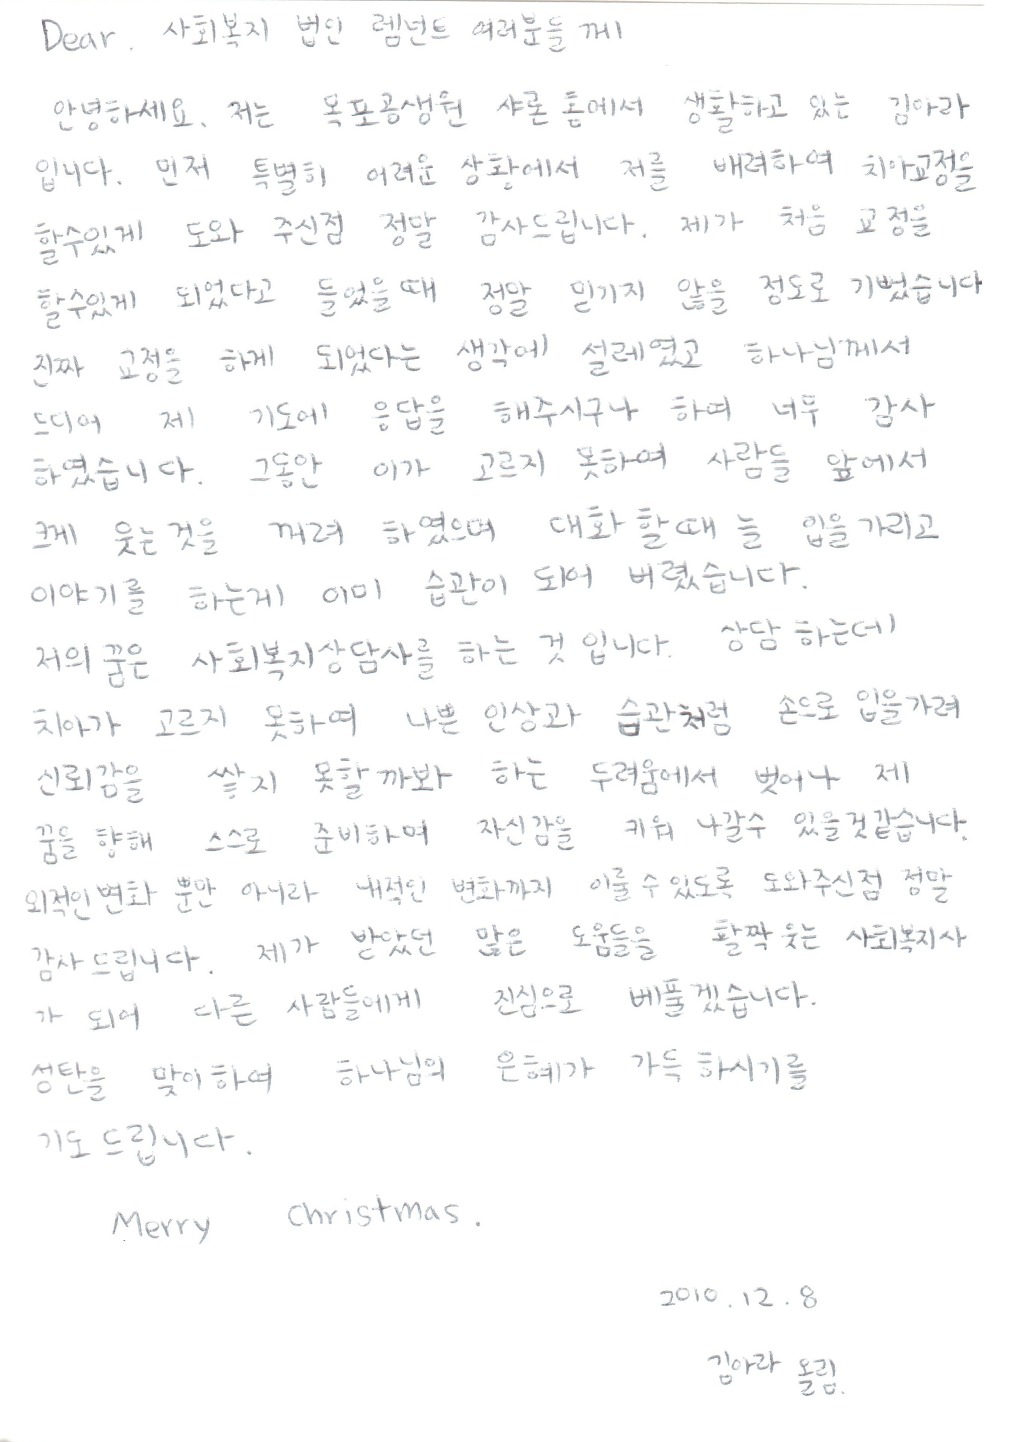 Dear. 사회복지 법인 렘넌트 여러분들께
안녕하세요. 저는 목포공생원 샤론홈에서 생활하고 있는 김아라
입니다. 먼저 특별히 어려운 상황에서 저를 배려하여 치아교정을
할수있게 도와 주신점 정말 감사드립니다. 제가 처음 교정을
할수있게 되었다고 들었을때 정말 믿기지 않을 정도로 기뻤습니다
진짜 교정을 하게 되었다는 생각에 설레였고 하나님께서
드디어 제 기도에 응답을 해주시구나 하며 너무 감사
하였습니다. 그동안 이가 고르지 못하여 사람들 앞에서
크게 웃는것을 꺼려 하였으며 대화할때 늘 입을가리고
이야기를 하는게 이미 습관이 되어 버렸습니다.
저의꿈은 사회복지상담사를 하는 것 입니다. 상담하는데
치아가 고르지 못하여 나쁜인상과 습관처럼 손으로 입을가려
신뢰감을 쌓지 못할까봐 하는 두려움에서 벗어나 제
꿈을 향해 스스로 준비하며 자신감을 키워 나갈수 있을것같습니다.
외적인변화 뿐만 아니라 내적인 변화까지 이룰수있도록 도와주신점 정말
감사드립니다. 제가 받았던 많은 도움들을 활짝웃는 사회복지사
가 되어 다른 사람들에게 진심으로 베풀겠습니다.
성탄을 맞이하여 하나님의 은혜가 가득하시기를
기도드립니다.
Merry Christmas.
2010.12.8
김아라 올림.